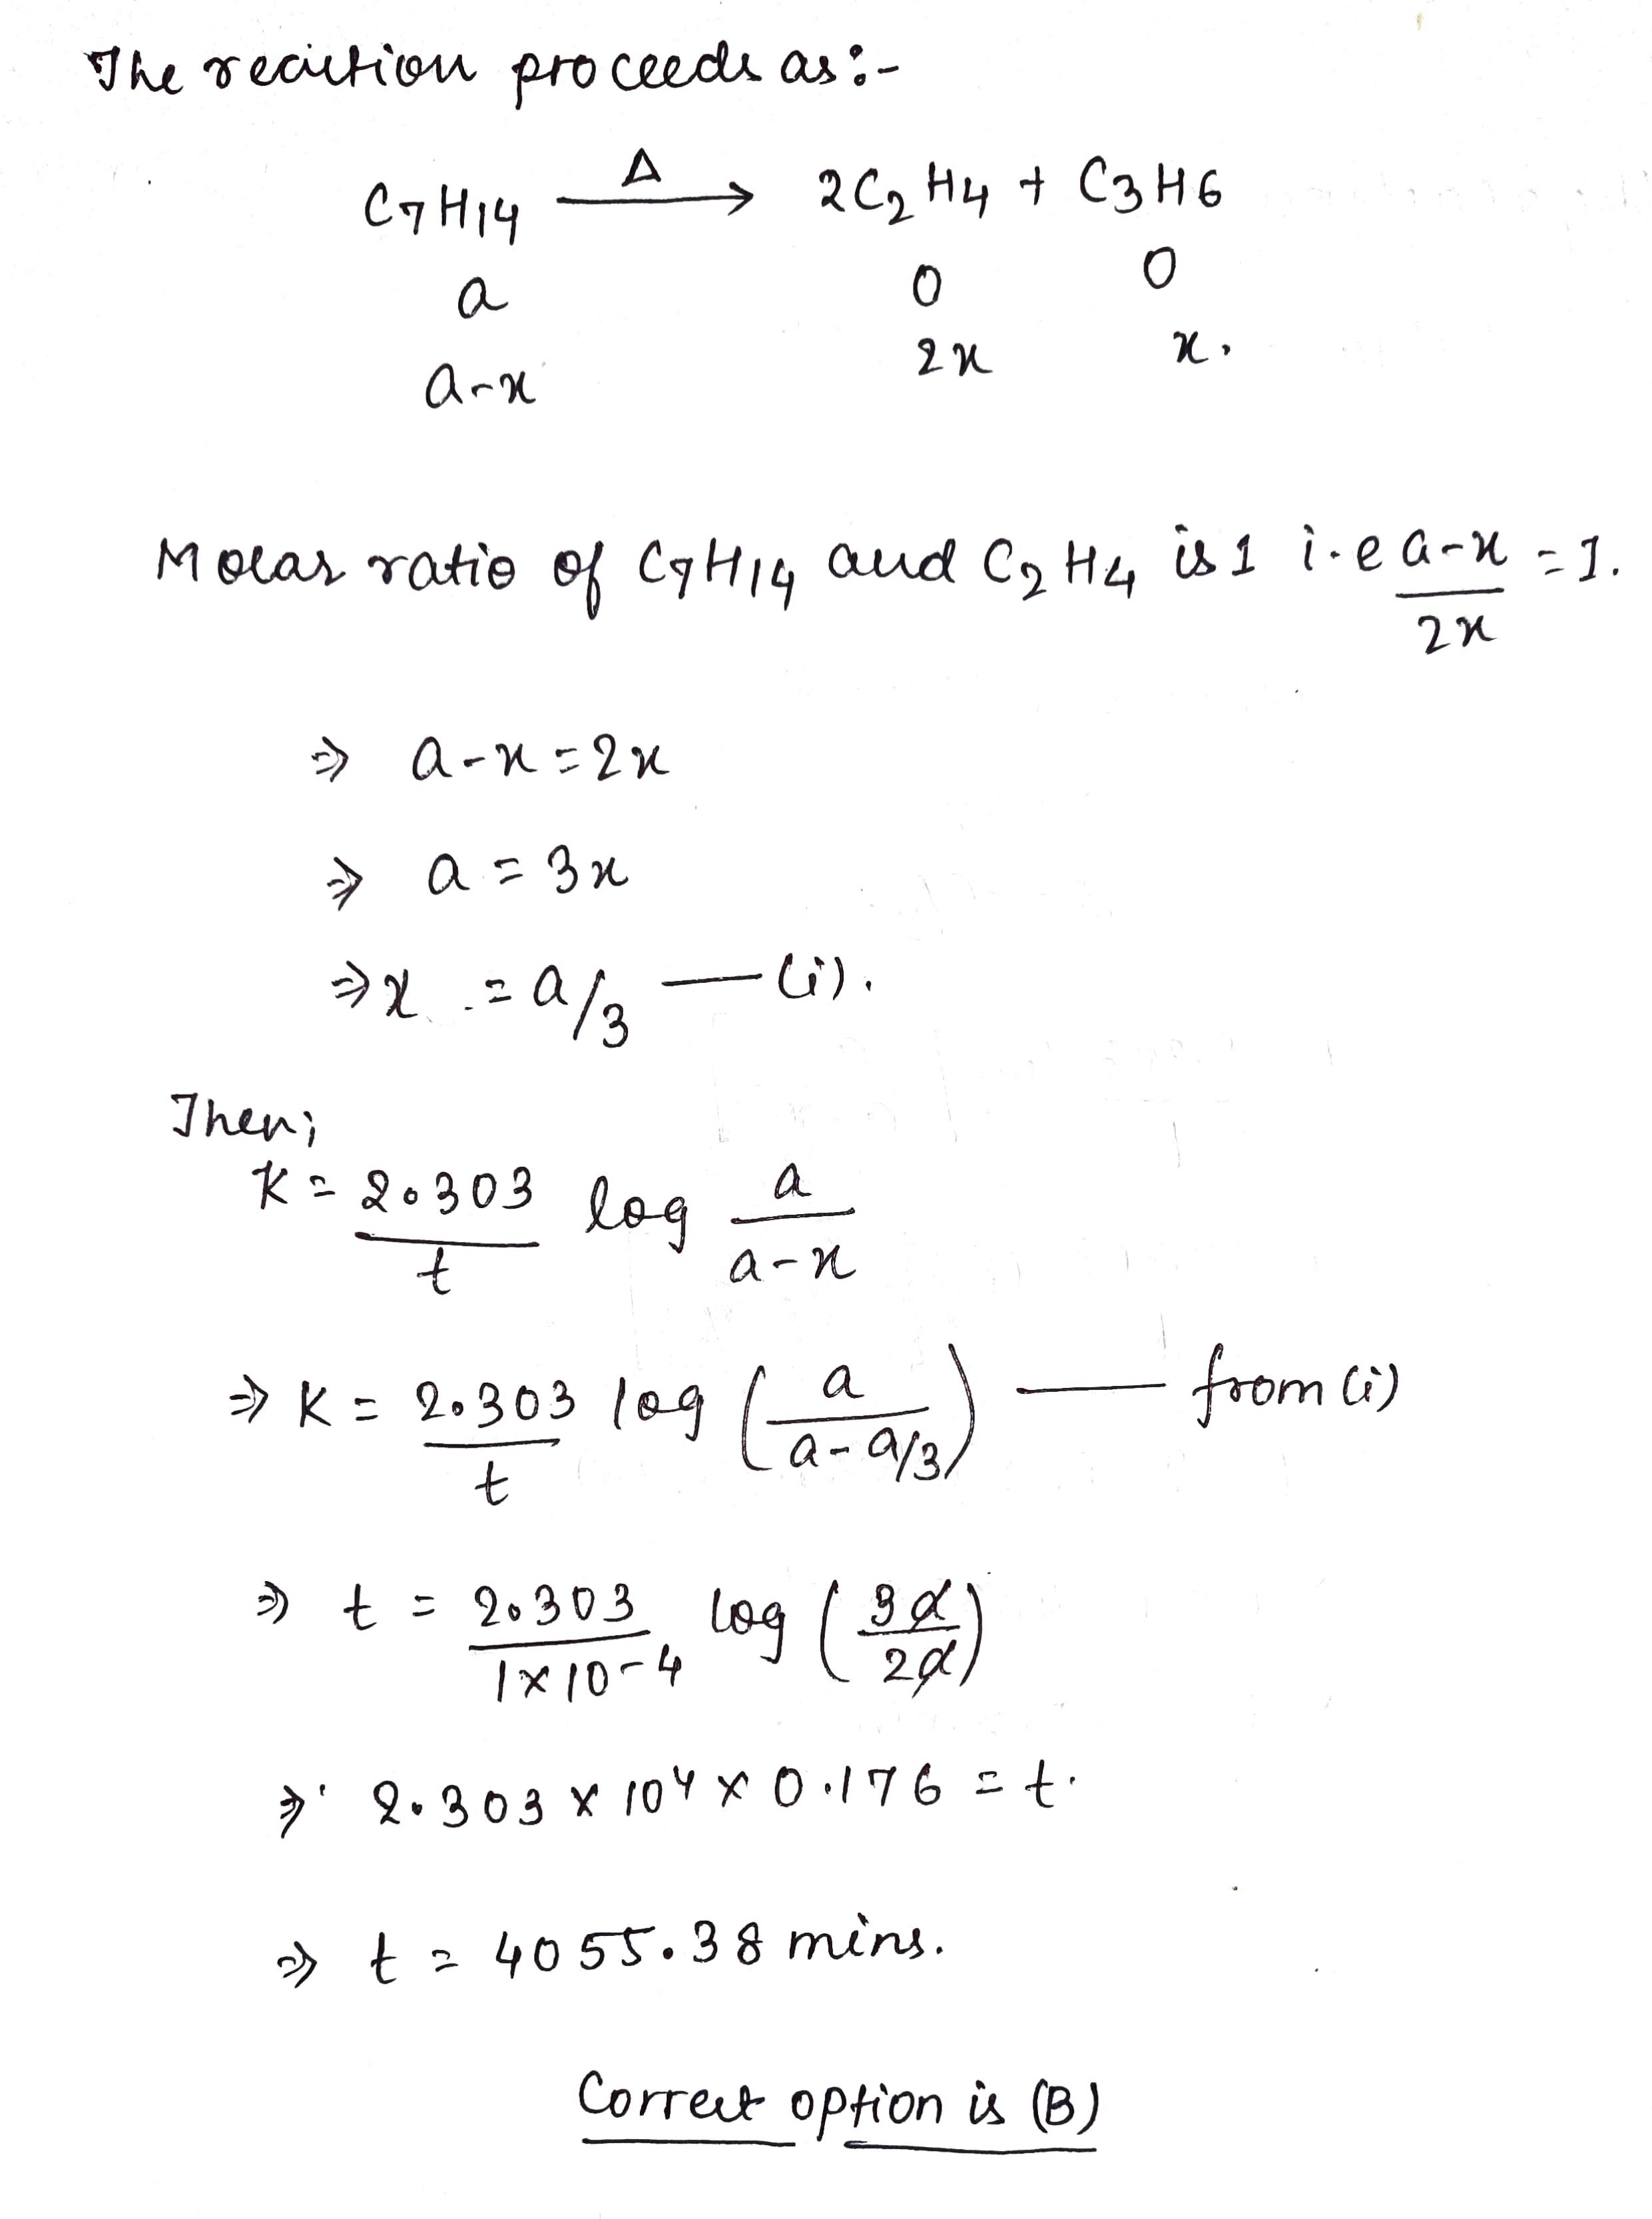 The reaction proceeds as:-
C7H14 —Δ→ 2C2H4 + C3H6
a 0 0
a-x 2x x.
Molar ratio of C7H14 and C2H4 is 1 i.e a-x/2x = 1.
⇒ a-x = 2x
⇒ a = 3x
⇒ x = a/3 — (i).
Then;
K = 2.303/t log a/a-x
⇒ K = 2.303/t log (a/a-a/3) — from (i)
⇒ t = 2.303/1×10-4 log (3a/2a)
⇒ 2.303 × 10^4 × 0.176 = t.
⇒ t = 4055.38 mins.
Correct option is (B)